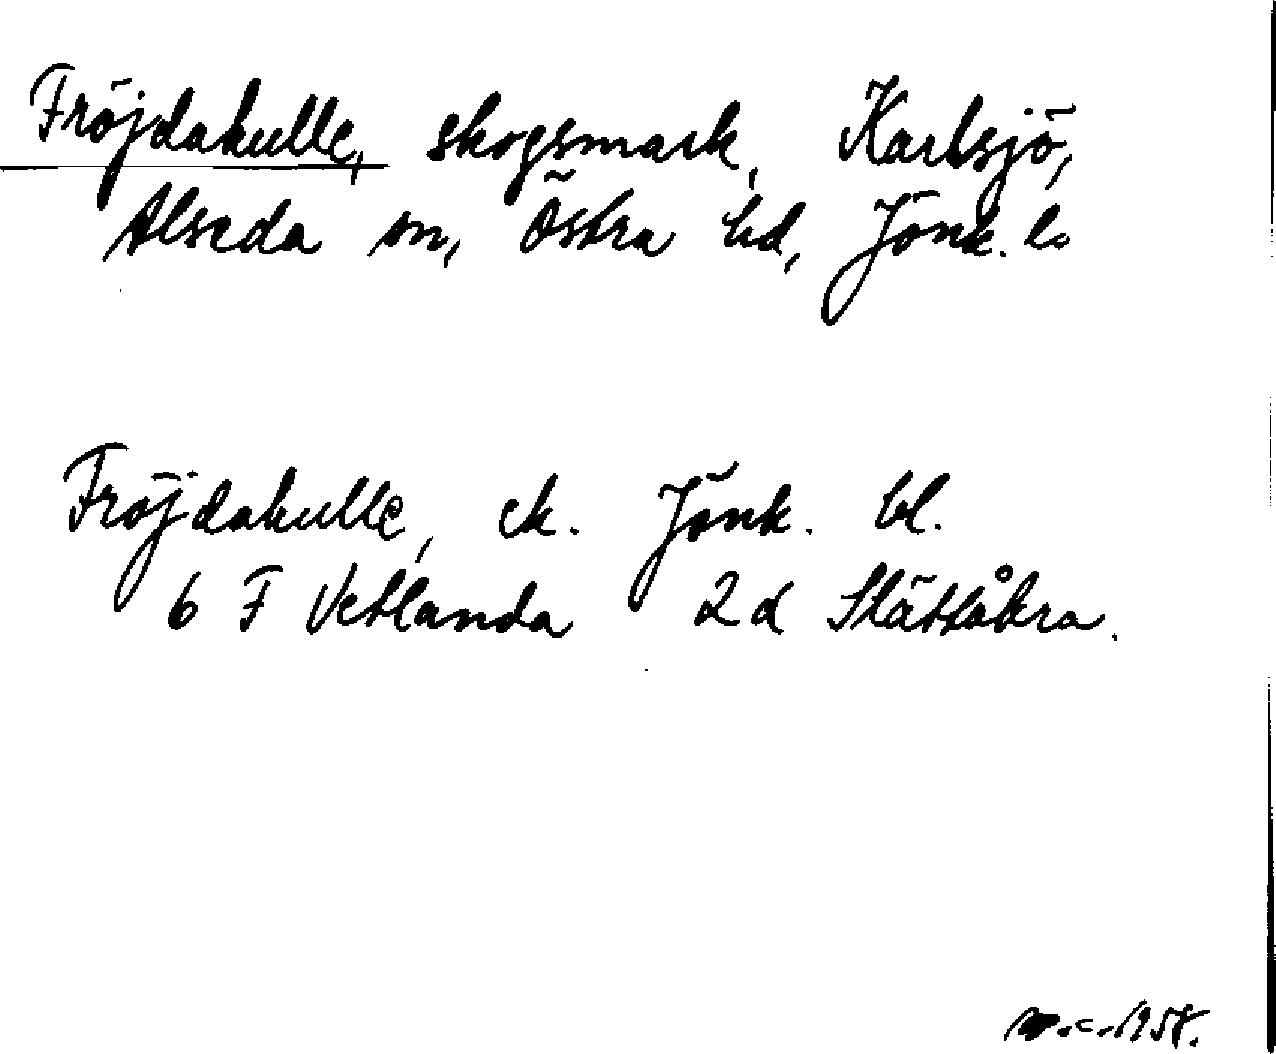 Fröjdakulle, skogsmark, Karlsjö,
Alseda sn, Östra hd, Jönk. l.
Fröjdakulle, ek. Jönk. bl.
6 F Vetlanda 2d Slättåkra.
1958.